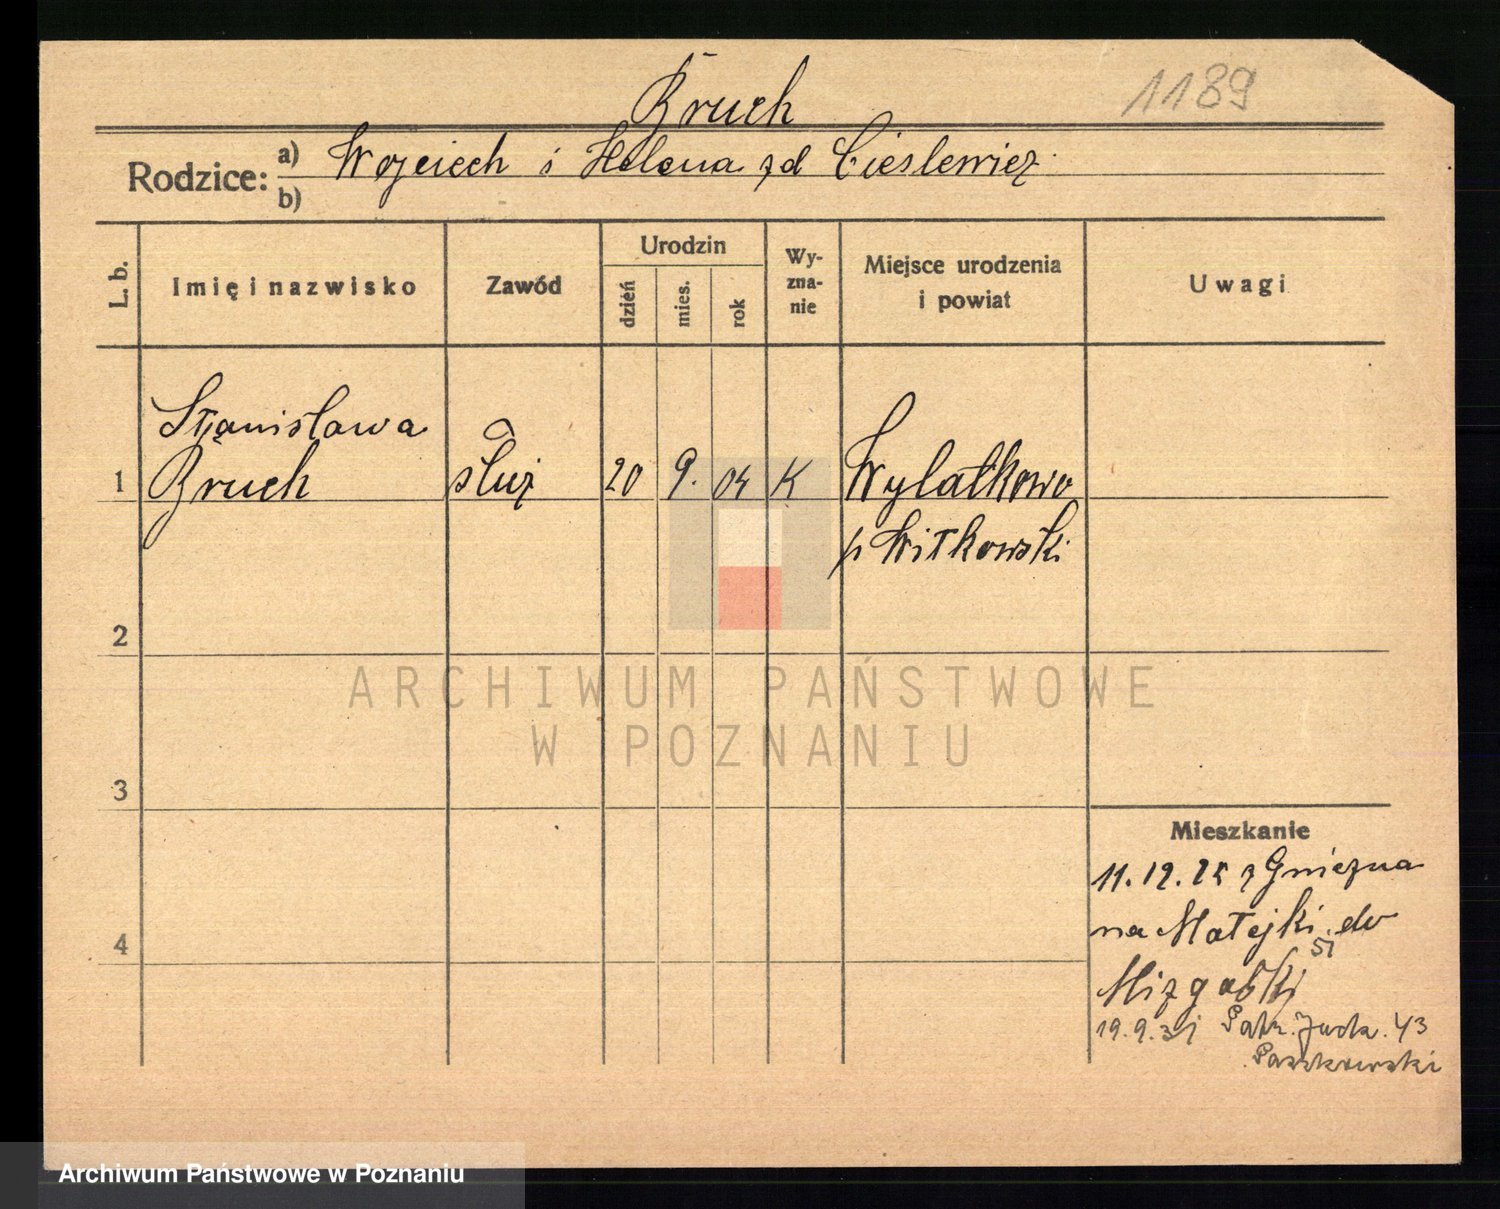 Bruch 1189
Rodzice: a) Wojciech i Helena zd Cieslewicz
b)
L. b. Imię i nazwisko Zawód Urodzin dzień mies. rok Wyznanie Miejsce urodzenia i powiat Uwagi
Stanisława
1 Bruch służ 20 9. 04 K Wylatkowo
p Witkowski
2
ARCHIWUM PAŃSTWOWE
W POZNANIU
3
Mieszkanie
11.12.25 z Gniezna
na Matejki 51 do
4
19.9.31 Patr. Jack. 43
Paszkowski
Archiwum Państwowe w Poznaniu